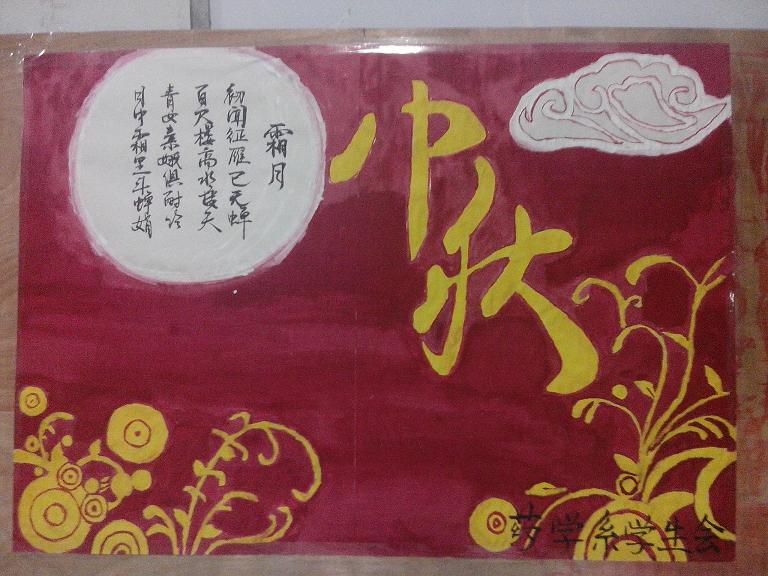 霜月
初闻征雁已无蝉
百尺楼高水接天
青女素娥俱耐冷
月中霜里斗婵娟
中秋
药学系学生会